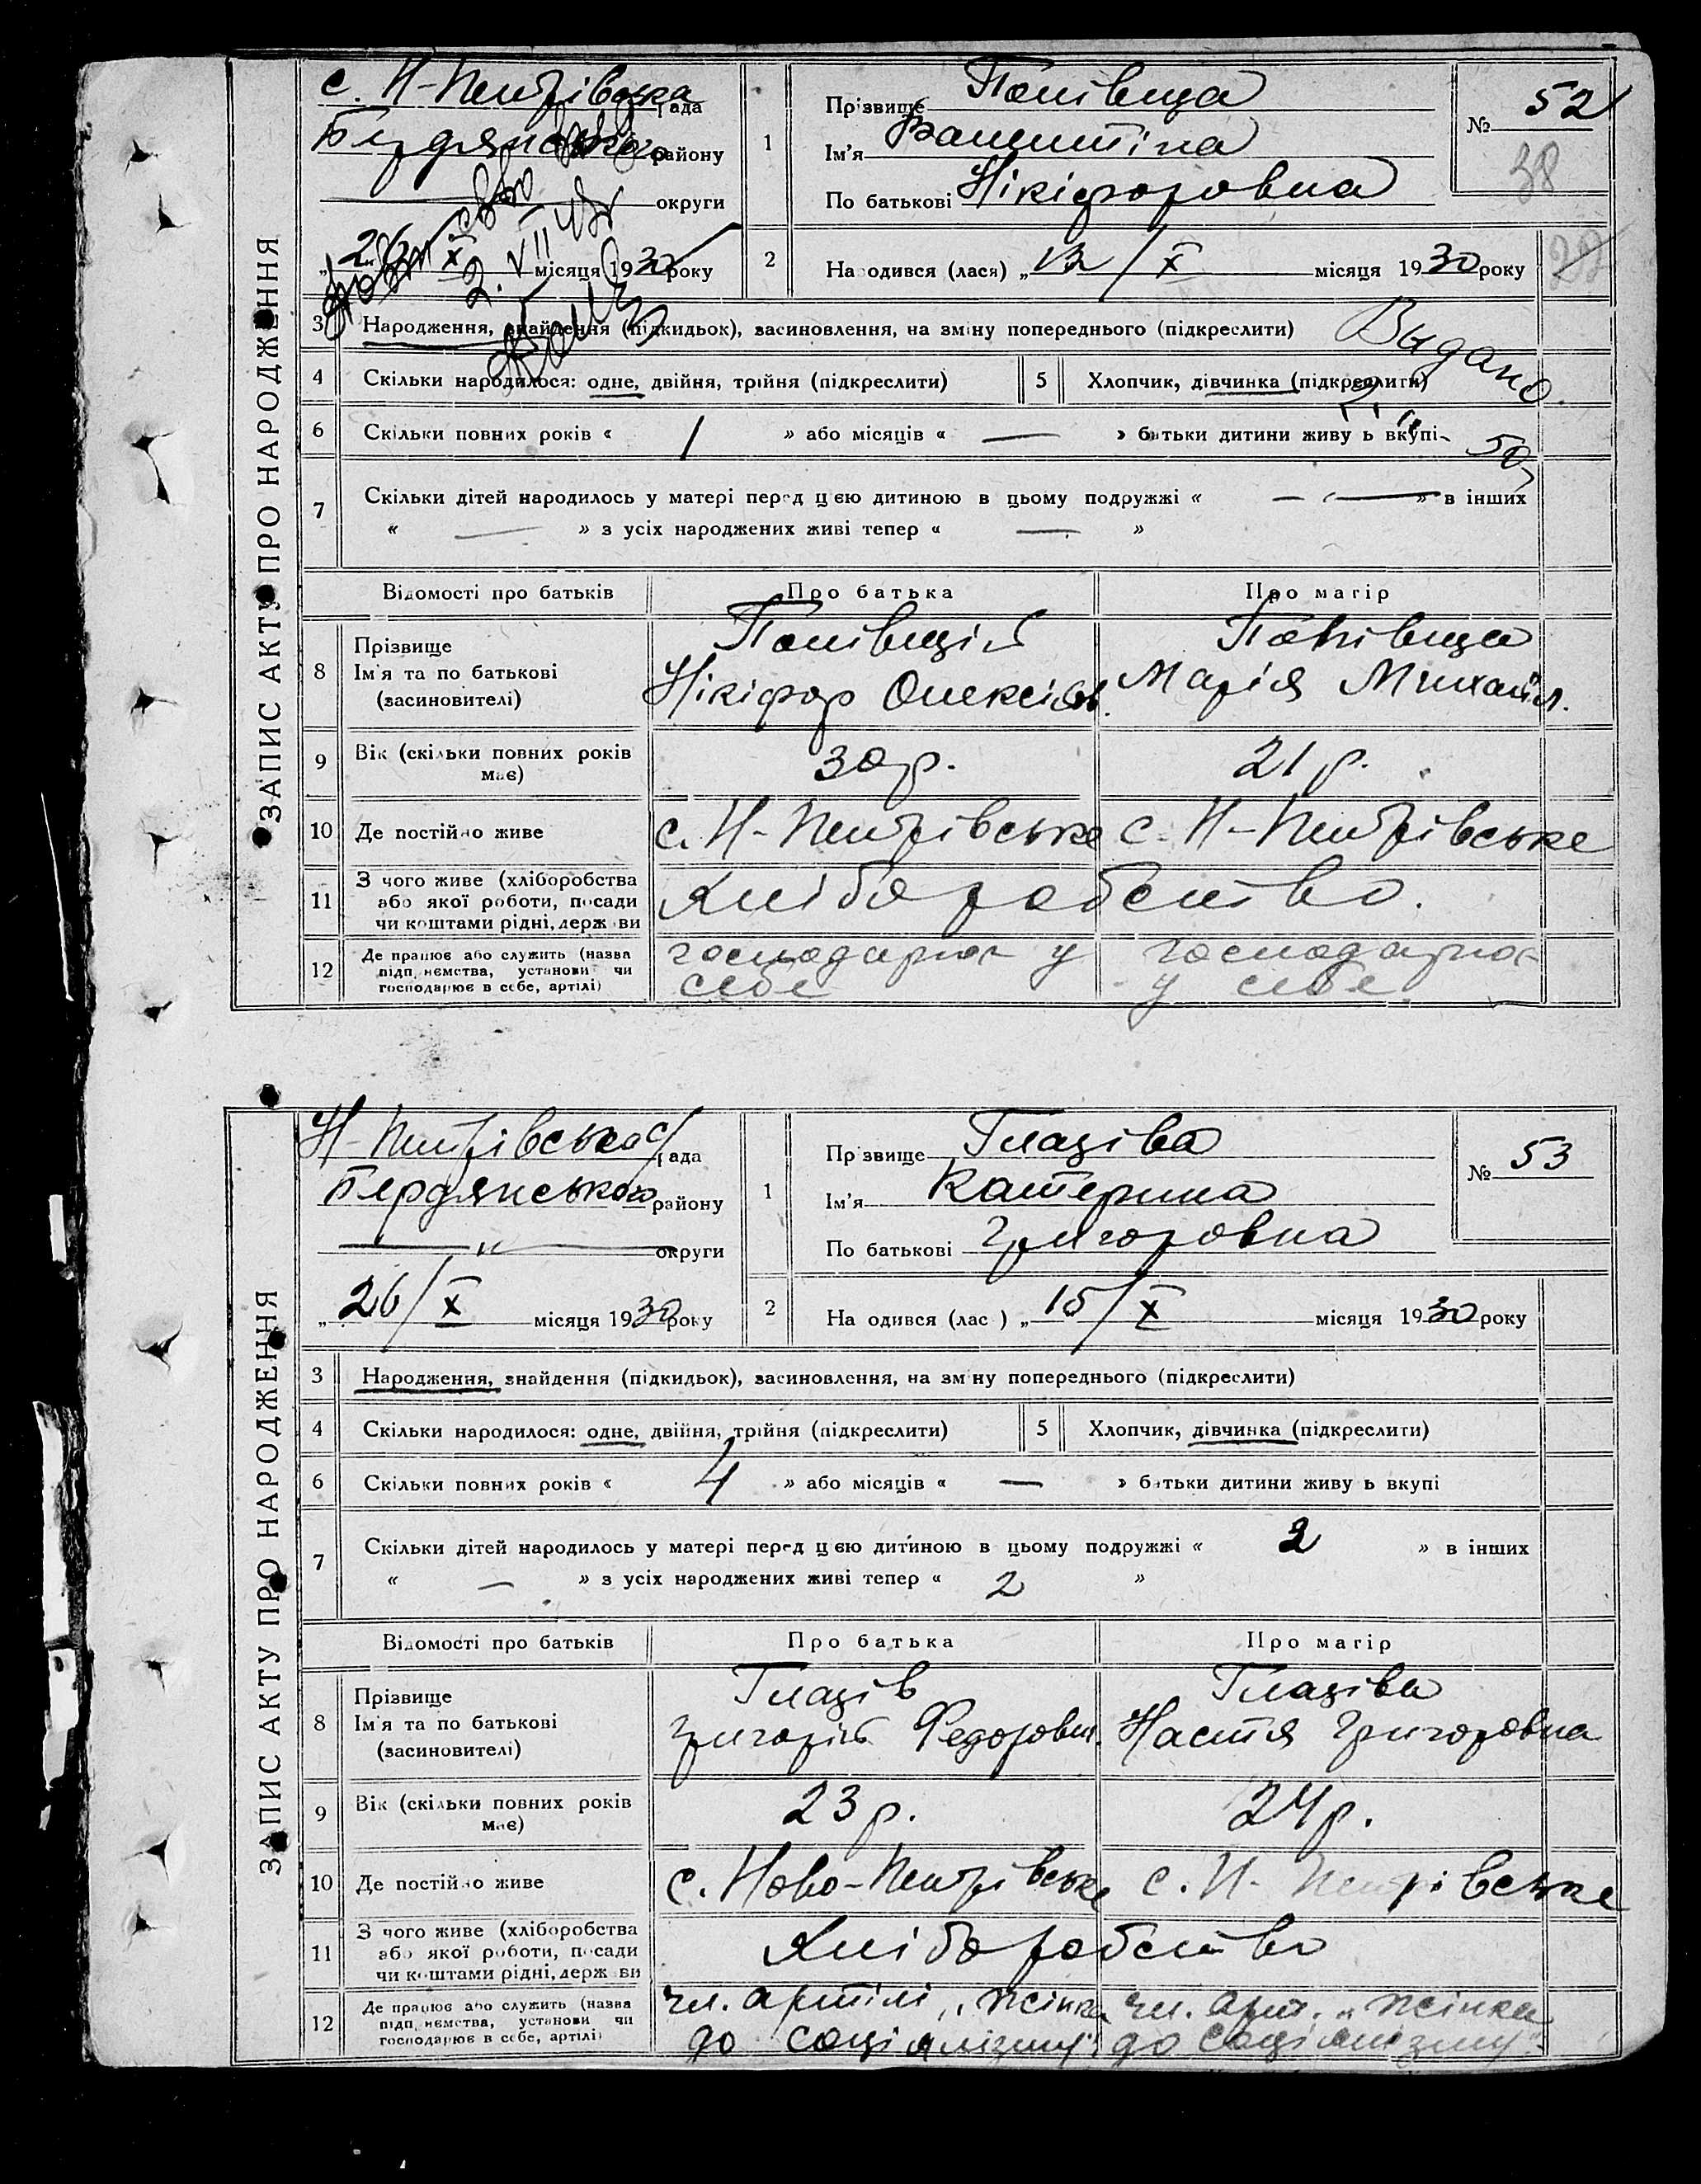 ЗАПИС АКТУ ПРО НАРОДЖЕННЯ
с. Н-Петрівська рада
Бердянського району
округи
„26 X місяця 1930 року
2. VII
1 Прізвище
Ім'я Валентіна
По батькові Нікіфоровна
№ 52
38
2 Народився (лася) „13/X місяця 1930 року
3 Народження, знайдення (підкидьок), засиновлення, на зміну попереднього (підкреслити)
Выдано
4 Скільки народилося: одне, двійня, трійня (підкреслити) 5 Хлопчик, дівчинка (підкреслити)
6 Скільки повних років « 1 » або місяців « — » батьки дитини живуть вкупі
50
7 Скільки дітей народилось у матері перед цією дитиною в цьому подружжі « — » в інших
« — » з усіх народжених живі тепер « — »
Відомості про батьків Про батька Про матір
8 Прізвище
Ім'я та по батькові Нікіфор Олексіев. Марія Михайл.
(засиновителі)
9 Вік (скільки повних років має) 30 р. 21 р.
10 Де постійно живе с. Н-Петрівське с. Н-Петрівське
11 З чого живе (хліборобства або якої роботи, посади чи коштами рідні, держави Хліборобство.
12 Де працює або служить (назва підприємства, установи чи господарює в себе, артілі) господарює у себе господарює у себе.
ЗАПИС АКТУ ПРО НАРОДЖЕННЯ
Н-Петрівська с/рада
Бердянського району
— „ — округи
„26/X місяця 1930 року
1 Прізвище Глазіва
Ім'я Катерина
По батькові Григоровна
№ 53
2 Народився (лася) „15/X місяця 1930 року
3 Народження, знайдення (підкидьок), засиновлення, на зміну попереднього (підкреслити)
4 Скільки народилося: одне, двійня, трійня (підкреслити) 5 Хлопчик, дівчинка (підкреслити)
6 Скільки повних років « 4 » або місяців « — » батьки дитини живуть вкупі
7 Скільки дітей народилось у матері перед цією дитиною в цьому подружжі « 2 » в інших
« — » з усіх народжених живі тепер « 2 »
Відомості про батьків Про батька Про матір
8 Прізвище Глазів Глазіва
Ім'я та по батькові Григорій Федорович. Настя Григоровна
(засиновителі)
9 Вік (скільки повних років має) 23 р. 24 р.
10 Де постійно живе с. Ново-Петрівське с. Н-Петрівське
11 З чого живе (хліборобства або якої роботи, посади чи коштами рідні, держави Хліборобство
12 Де працює або служить (назва підприємства, установи чи господарює в себе, артілі) чл. артілі „жінка до соціялізму". чл. арт. „жінка до соціялізму".